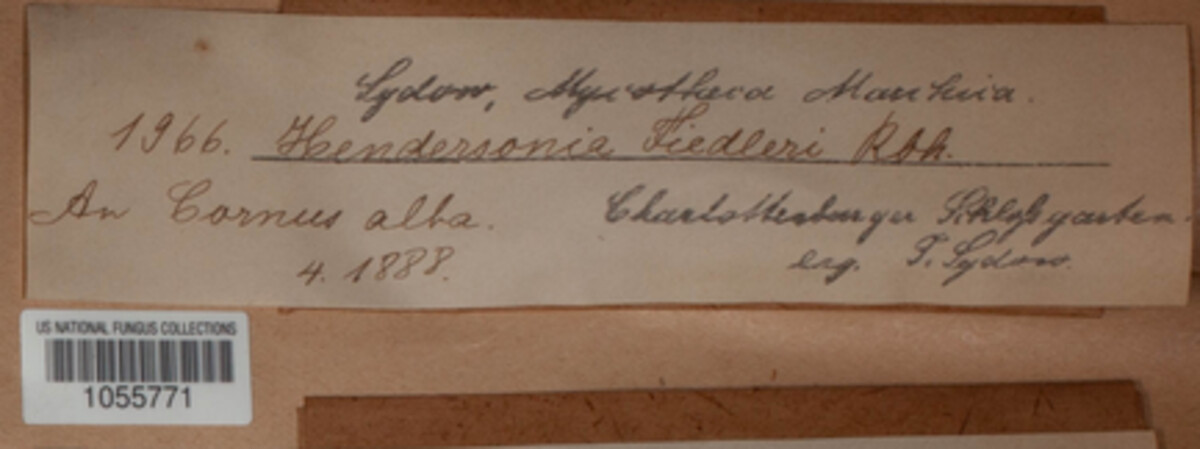 Sydow, Mycotheca Marchica.
1966. Hendersonia Fiedleri Rbh.
An Cornus alba. Charlottenburger Schloßgarten.
4. 1888. leg. P. Sydow.
US NATIONAL FUNGUS COLLECTIONS
1055771